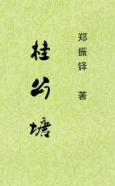 郑振铎 著
桂公塘